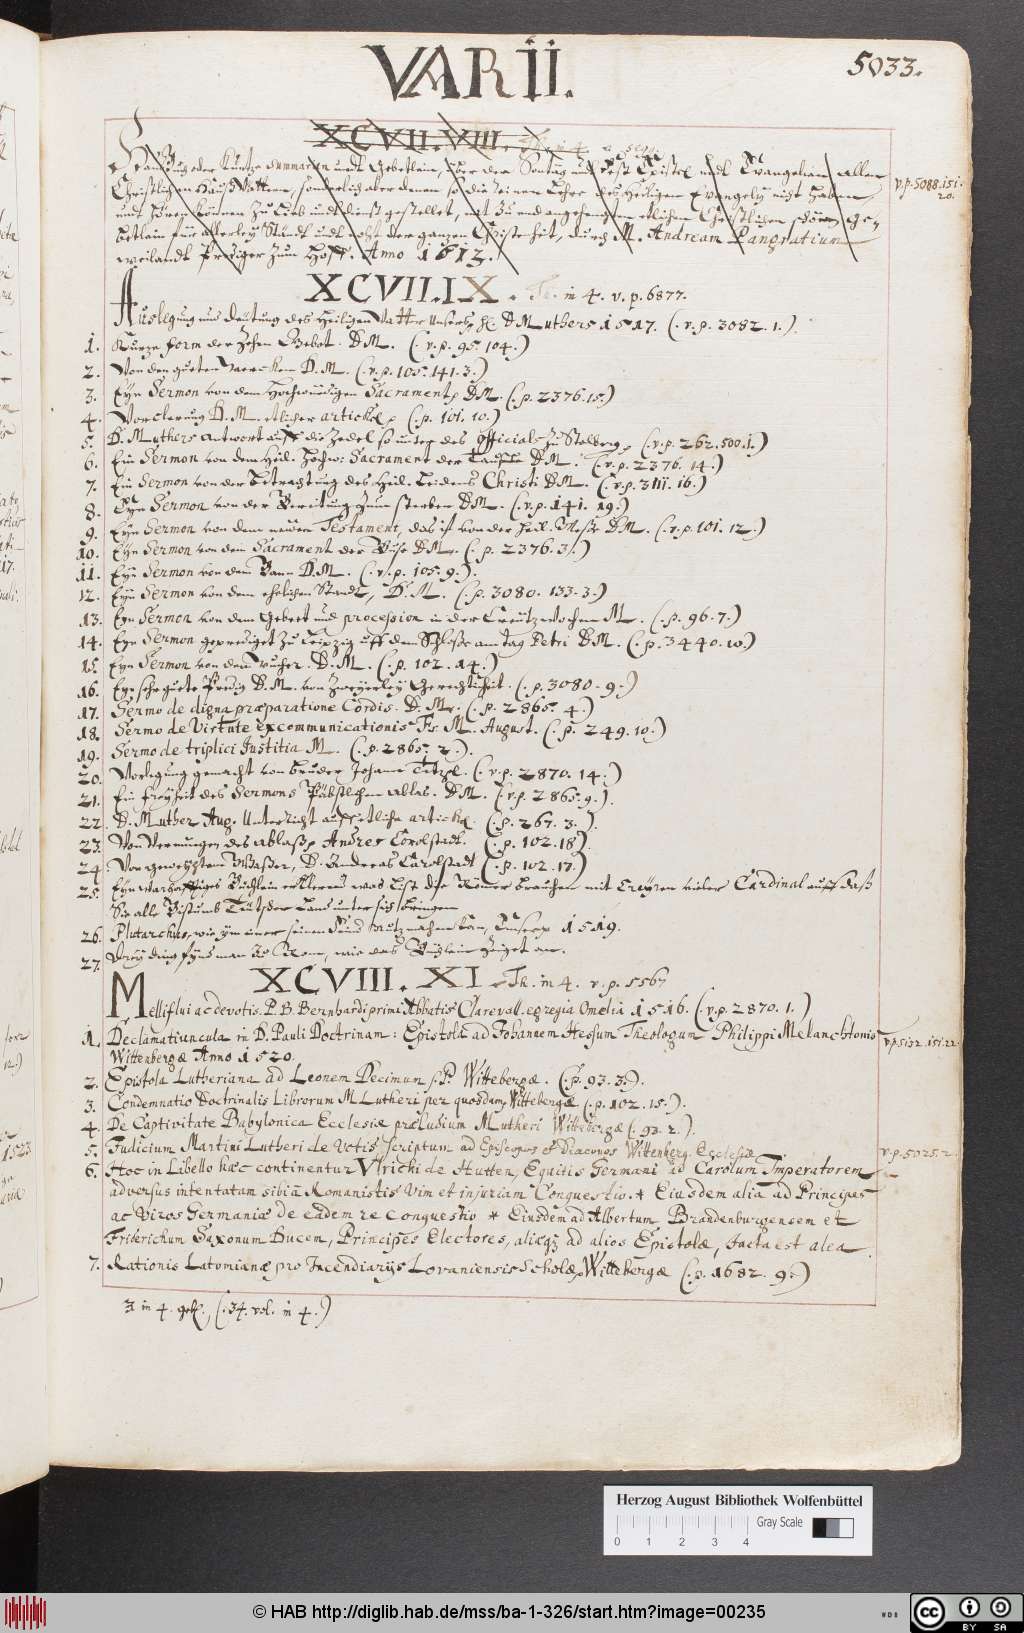 VARII.
5033.
XCVII.VIII.
HaußBuch oder Kurtze Summarien undt Gebetlein, über der Sontäg undt Fest Epistel undt Evangelien Allen
v.p.5088.151.
20.
Christlichen Hauß Vättern, sonderlich aber denen so die reinen Lehre des Heiligen Evangelÿ nicht haben
undt hören können zu Lieb undt dienst gestellet, mit zu end angehengten etlichen Christlichen schönen Ge-
betlein für allerley Ständt undt noht der gantzen Christenheit, durch M. Andream Pangratium
weilandt Prediger zum Hoff. Anno 1613.
XCVII.IX. Th. in 4. v. p. 6877.
Auslegung und deutung des Heiligen Vatter Unsers D M Luthers 1517. (. v. p. 3082. 1.)
1. Kurze form der Zehen Gebot. D M. (. v. p. 95. 104.)
2. Von den guten Wercken D. M. (. v. p. 105. 141. 3.)
3. Eyn Sermon von dem Hochwirdigen Sacrament D M. (. p. 2376. 15.)
4. Vorclerung D. M. etlicher artickel (. p. 101. 10.)
5. D. M Luthers Antwort auff die Zedel so unter des Officials zu Stolberg (. v. p. 262. 500. 1.)
6. Ein Sermon von dem Heil. Hochw: Sacrament der Tauffe D M. (. v. p. 2376. 14.)
7. Ein Sermon von der Betrachtung des Heil. Leidens Christi D M. (. v. p. 3111. 16.)
8. Eyn Sermon von der Bereitung zum sterben D M. (. v. p. 141. 19.)
9. Eyn Sermon von dem neuen Testament, das ist von der Heil. Messe D M. (. v. p. 101. 12.)
10. Eyn Sermon von dem Sacrament der Buse D M. (. p. 2376. 3.)
11. Eyn Sermon von dem Bann D. M. (. v. p. 105. 9.)
12. Eyn Sermon von dem ehelichen Standt, D. M. (. p. 3080. 133. 3.)
13. Eyn Sermon von dem Gebeet und procession in der Creützwochen M. (. p. 96. 7.)
14. Eyn Sermon geprediget zu Leipzig uff dem Schlosse am tag Petri D M. (. p. 3440. 10.)
15. Eyn Sermon von dem Wucher. D. M. (. p. 102. 14.)
16. Eyn sehr gute Predig D. M. von zweyerley Gerechtikeit. (. p. 3080. 9.)
17. Sermo de digna præparatione Cordis. D. M. (. p. 2865. 4.)
18. Sermo de Virtute excommunicationis Fr. M. August. (. p. 249. 10.)
19. Sermo de triplici Justitia M. (. p. 2865. 2.).
20. Vorlegung gemacht von bruder Johann Tetzel. (. v. p. 2870. 14.)
21. Ein freyheit des Sermons Päbstlichen ablas. D M. (. v. p. 2865. 9.).
22. D. M Luther Aug. Unterricht auff etliche artickel (. p. 267. 3.).
23. Von Vermungen des ablaß Andres Corolstadt. (. p. 102. 18.)
24. Von geweyhtem Wasser, D. Andreas Carolstadt (. p. 102. 17.)
25. Eyn warhafftiges Büchlein erklerend was List die Römer brauchen mit Creyren vieler Cardinal auff daß
Sie alle Bistumb Teutscher Land unter sich bringen
26. Plutarchus, wie ym einer seinen Feind nutz machen kan, 1519.
27. Drey ding fynd man zu Rom, wie das Büchlein zeiget an.
XCVIII. XI. Th. in 4. v. p. 5567
Melliflui ac devotis. P. B. Bernhardi primi Abbatis Clarevall. egregia Omelia 1516. (. v. p. 2870. 1.)
1. Declamatiuncula in D. Pauli Doctrinam: Epistola ad Johannem Hessum Theologum Philippi Melanchtonis
v.p.5132.151.22.
Wittenbergæ Anno 1520.
2. Epistola Lutheriana ad Leonem Decimum S. P. Wittebergæ. (. p. 93. 3.).
3. Condemnatio Doctrinalis Librorum M Lutheri per quosdam Wittebergæ (. p. 102. 15.).
4. De Captivitate Babylonica Ecclesiæ præludium M Lutheri Wittebergæ (. 93. 2.).
5. Judicium Martini Lutheri de Votis scriptum ad Episcopos et Diaconos Wittenberg. Ecclesiæ.
v.p.5025.2.
6. Hoc in Libello hæc continentur Vlrichi de Hutten, Equitis Germani ad Carolum Imperatorem
adversus intentatam sibi a Romanistis vim et injuriam Conquestio. * Eiusdem alia ad Principes
ac Viros Germaniæ de eadem re conquestio * Eiusdem ad Albertum Brandenburgensem et
Friderichum Saxonum Ducem, Principes Electores, aliæq; ad alios Epistolæ, Jacta est alea.
7. Rationis Latomianæ pro Incendiarijs Lovaniensis Scholæ, Wittebergæ (. p. 1682. 9.)
3 in 4. geb., (. 34. vol. in 4.)
Herzog August Bibliothek Wolfenbüttel
Gray Scale
0 1 2 3 4
© HAB http://diglib.hab.de/mss/ba-1-326/start.htm?image=00235
WDB
cc BY SA